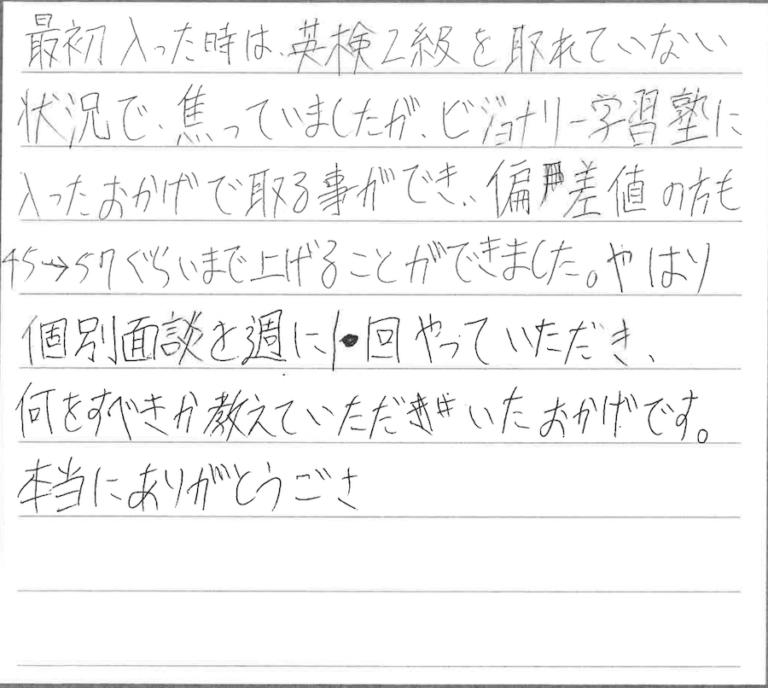 最初入った時は、英検2級を取れていない
状況で、焦っていましたが、ビジョナリー学習塾に
入ったおかげで取る事ができ、偏差値の方も
45→57ぐらいまで上げることができました。やはり
個別面談を週に1回やっていただき、
何をすべきか教えていただいたおかげです。
本当にありがとうござ